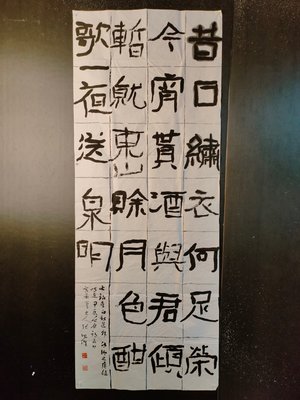 昔日繡衣何足榮
今宵貰酒與君傾
暫就東山賒月色酣
歌一夜送泉明